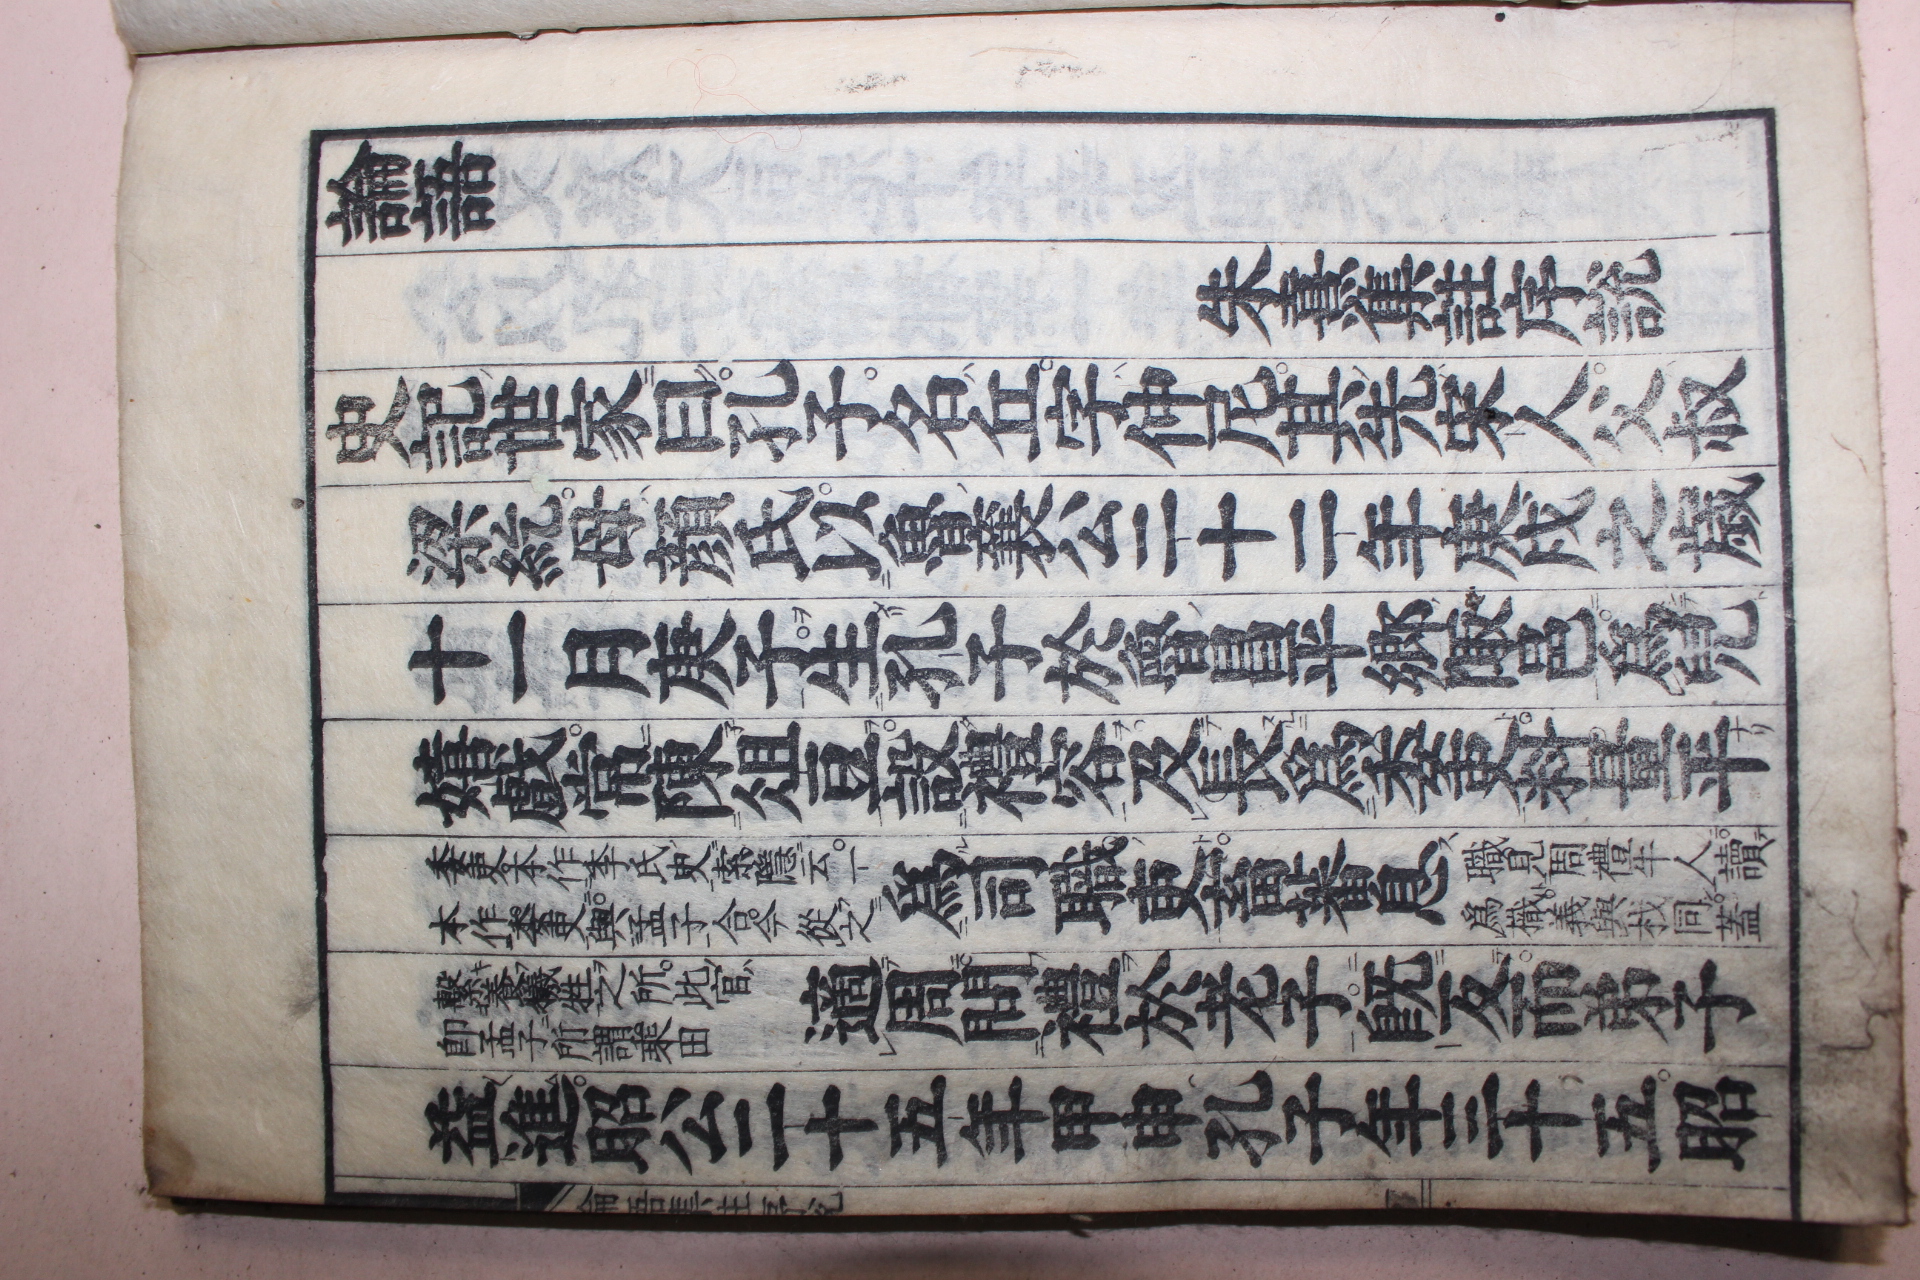 論語
朱熹集註序說
史記世家曰孔子名丘字仲尼其先宋人父叔
梁紇母顏氏以魯襄公二十二年庚戌之歲
十一月庚子生孔子於魯昌平鄉陬邑爲兒
嬉戲常陳俎豆設禮容及長爲委吏料量平
委吏本作季氏史索隱云一
本作委吏與孟子合今從之
爲司職吏畜蕃息
職見周禮牛人讀
爲樴義與杙同蓋
繫養犧牲之所此官
卽孟子所謂乘田
適周問禮於老子旣反而弟子
益進昭公二十五年甲申孔子年三十五昭
論語集註序說